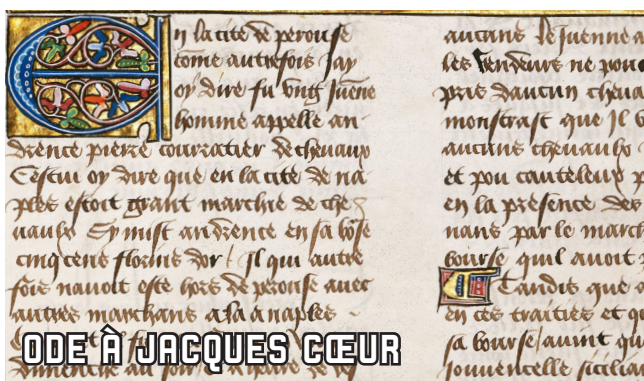 En la cite de perouse
come autrefois Jay
oy dire fu vng Juene
homme appelle an
drence pierre courratier de cheuaux
Cestui oy dire que en la cite de na
ples estoit grant marchie de che
uaulx Cy mist andrence en sa
cinq cens florins dor / Jl qui autre
fois nauoit este hors de perouse auec
autres marchans ala a naples
dimenche au soir a heure de
aucuns le Juenne a
les vendeurs ne pou
pris daucun cheua
monstrast que Jl
aucuns cheuaulx
et pou cauteleux p
en la presence des
nans par le march
bourse quil auoit
Tandis que a
en ces traities et qu
sa bourse / auint qu
Jouuencelle sicilia
ODE À JACQUES CŒUR